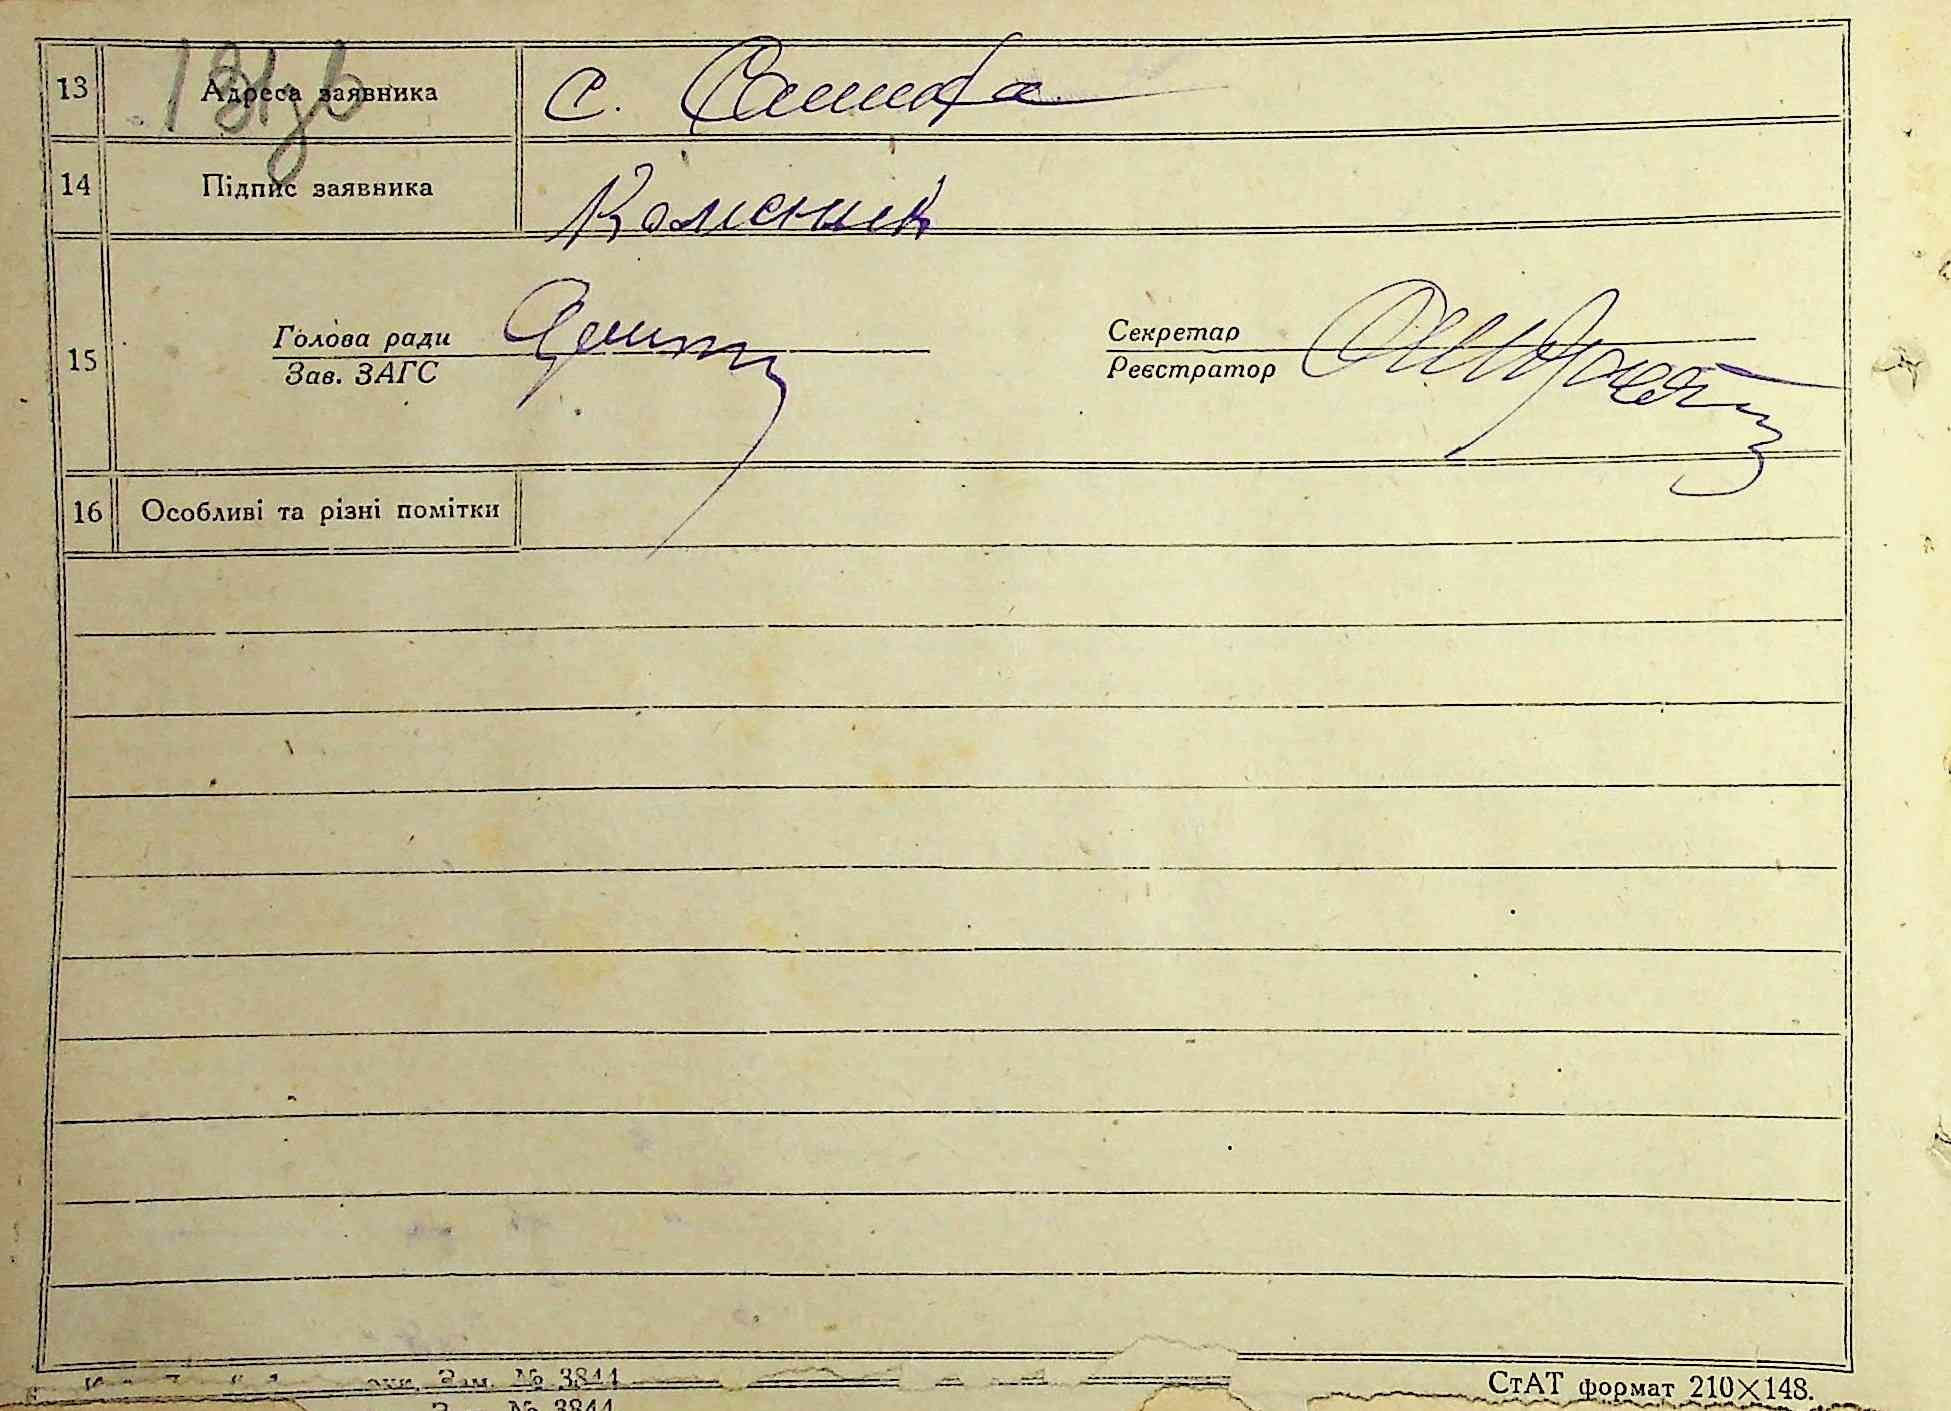 13 Адреса заявника с.
14 Підпис заявника Колісник
15 Голова ради Секретар
Зав. ЗАГС Реєстратор
16 Особливі та різні помітки
Зам. № 3844
Зам. № 3844
СтАТ формат 210×148.